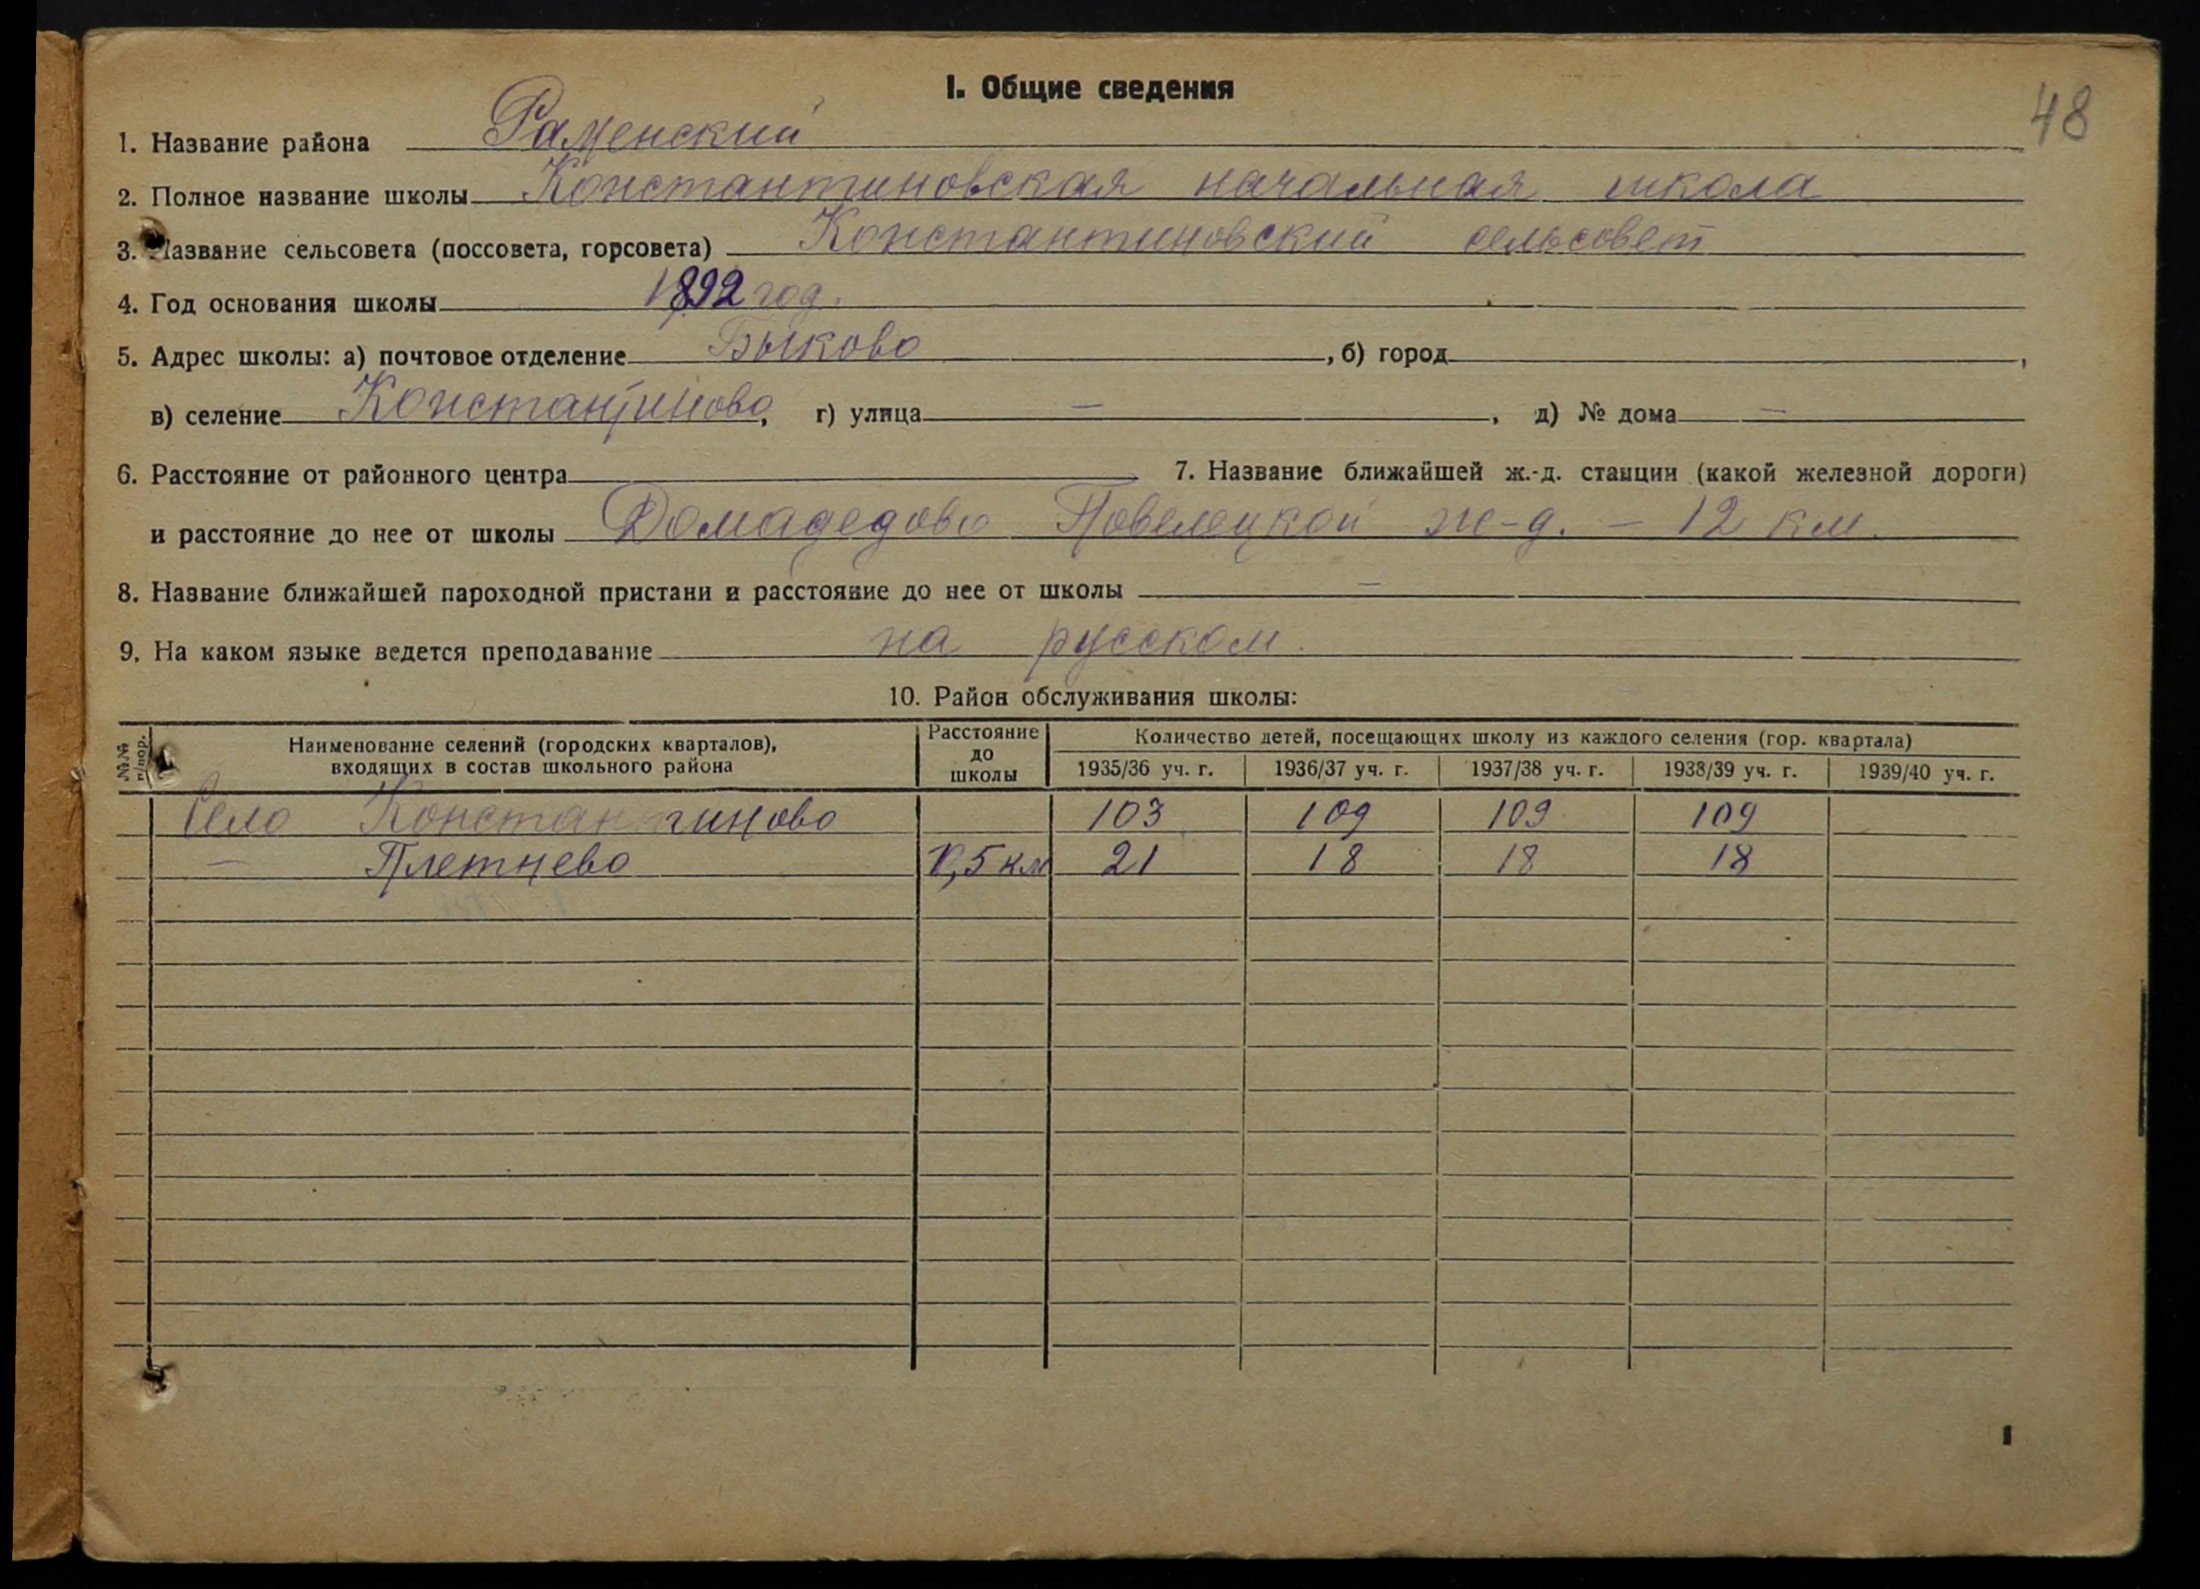 I. Общие сведения
48
1. Название района Раменский
2. Полное название школы Константиновская начальная школа
3. Название сельсовета (поссовета, горсовета) Константиновский сельсовет
4. Год основания школы 1892 год.
5. Адрес школы: а) почтовое отделение Быково, б) город ,
в) селение Константиново, г) улица —, д) № дома —
6. Расстояние от районного центра 7. Название ближайшей ж.-д. станции (какой железной дороги)
и расстояние до нее от школы Домадедово Повелецкой ж-д. – 12 км.
8. Название ближайшей пароходной пристани и расстояние до нее от школы —
9. На каком языке ведется преподавание на русском.
10. Район обслуживания школы:
№№ п/пор. Наименование селений (городских кварталов), входящих в состав школьного района Расстояние до школы Количество детей, посещающих школу из каждого селения (гор. квартала)
1935/36 уч. г. 1936/37 уч. г. 1937/38 уч. г. 1938/39 уч. г. 1939/40 уч. г.
Село Константиново 103 109 109 109
— Плетнево 0,5 км 21 18 18 18
1